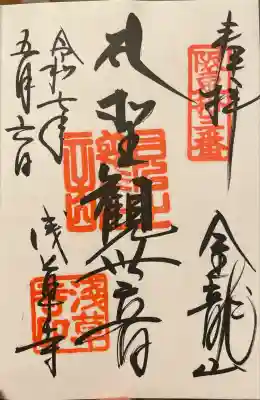 奉拝
坂東十三番
金龍山
聖觀世音
令和七年
五月六日
浅草寺
淺草寺印